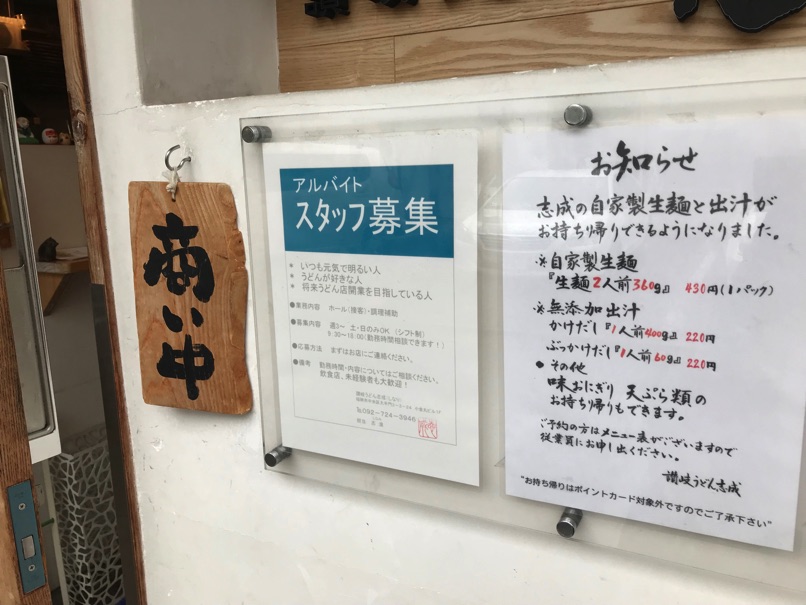 商い中
アルバイト
スタッフ募集
* いつも元気で明るい人
* うどんが好きな人
* 将来うどん店開業を目指している人
●業務内容 ホール(接客)・調理補助
●募集内容 週3～ 土・日のみOK (シフト制)
9:30～18:00(勤務時間相談できます!)
●応募方法 まずはお店にご連絡ください。
●備考 勤務時間・内容についてはご相談ください。
飲食店、未経験者も大歓迎!
℡092-724-3946
お知らせ
志成の自家製生麺と出汁が
お持ち帰りできるようになりました。
※自家製生麺
『生麺2人前360g』 430円(1パック)
※無添加出汁
かけだし『1人前400g』220円
ぶっかけだし『1人前60g』220円
● その他
味おにぎり 天ぷら類の
お持ち帰りもできます。
ご予約の方はメニュー表がございますので
従業員にお申し出ください。
讃岐うどん志成
"お持ち帰りはポイントカード対象外ですのでご了承下さい"